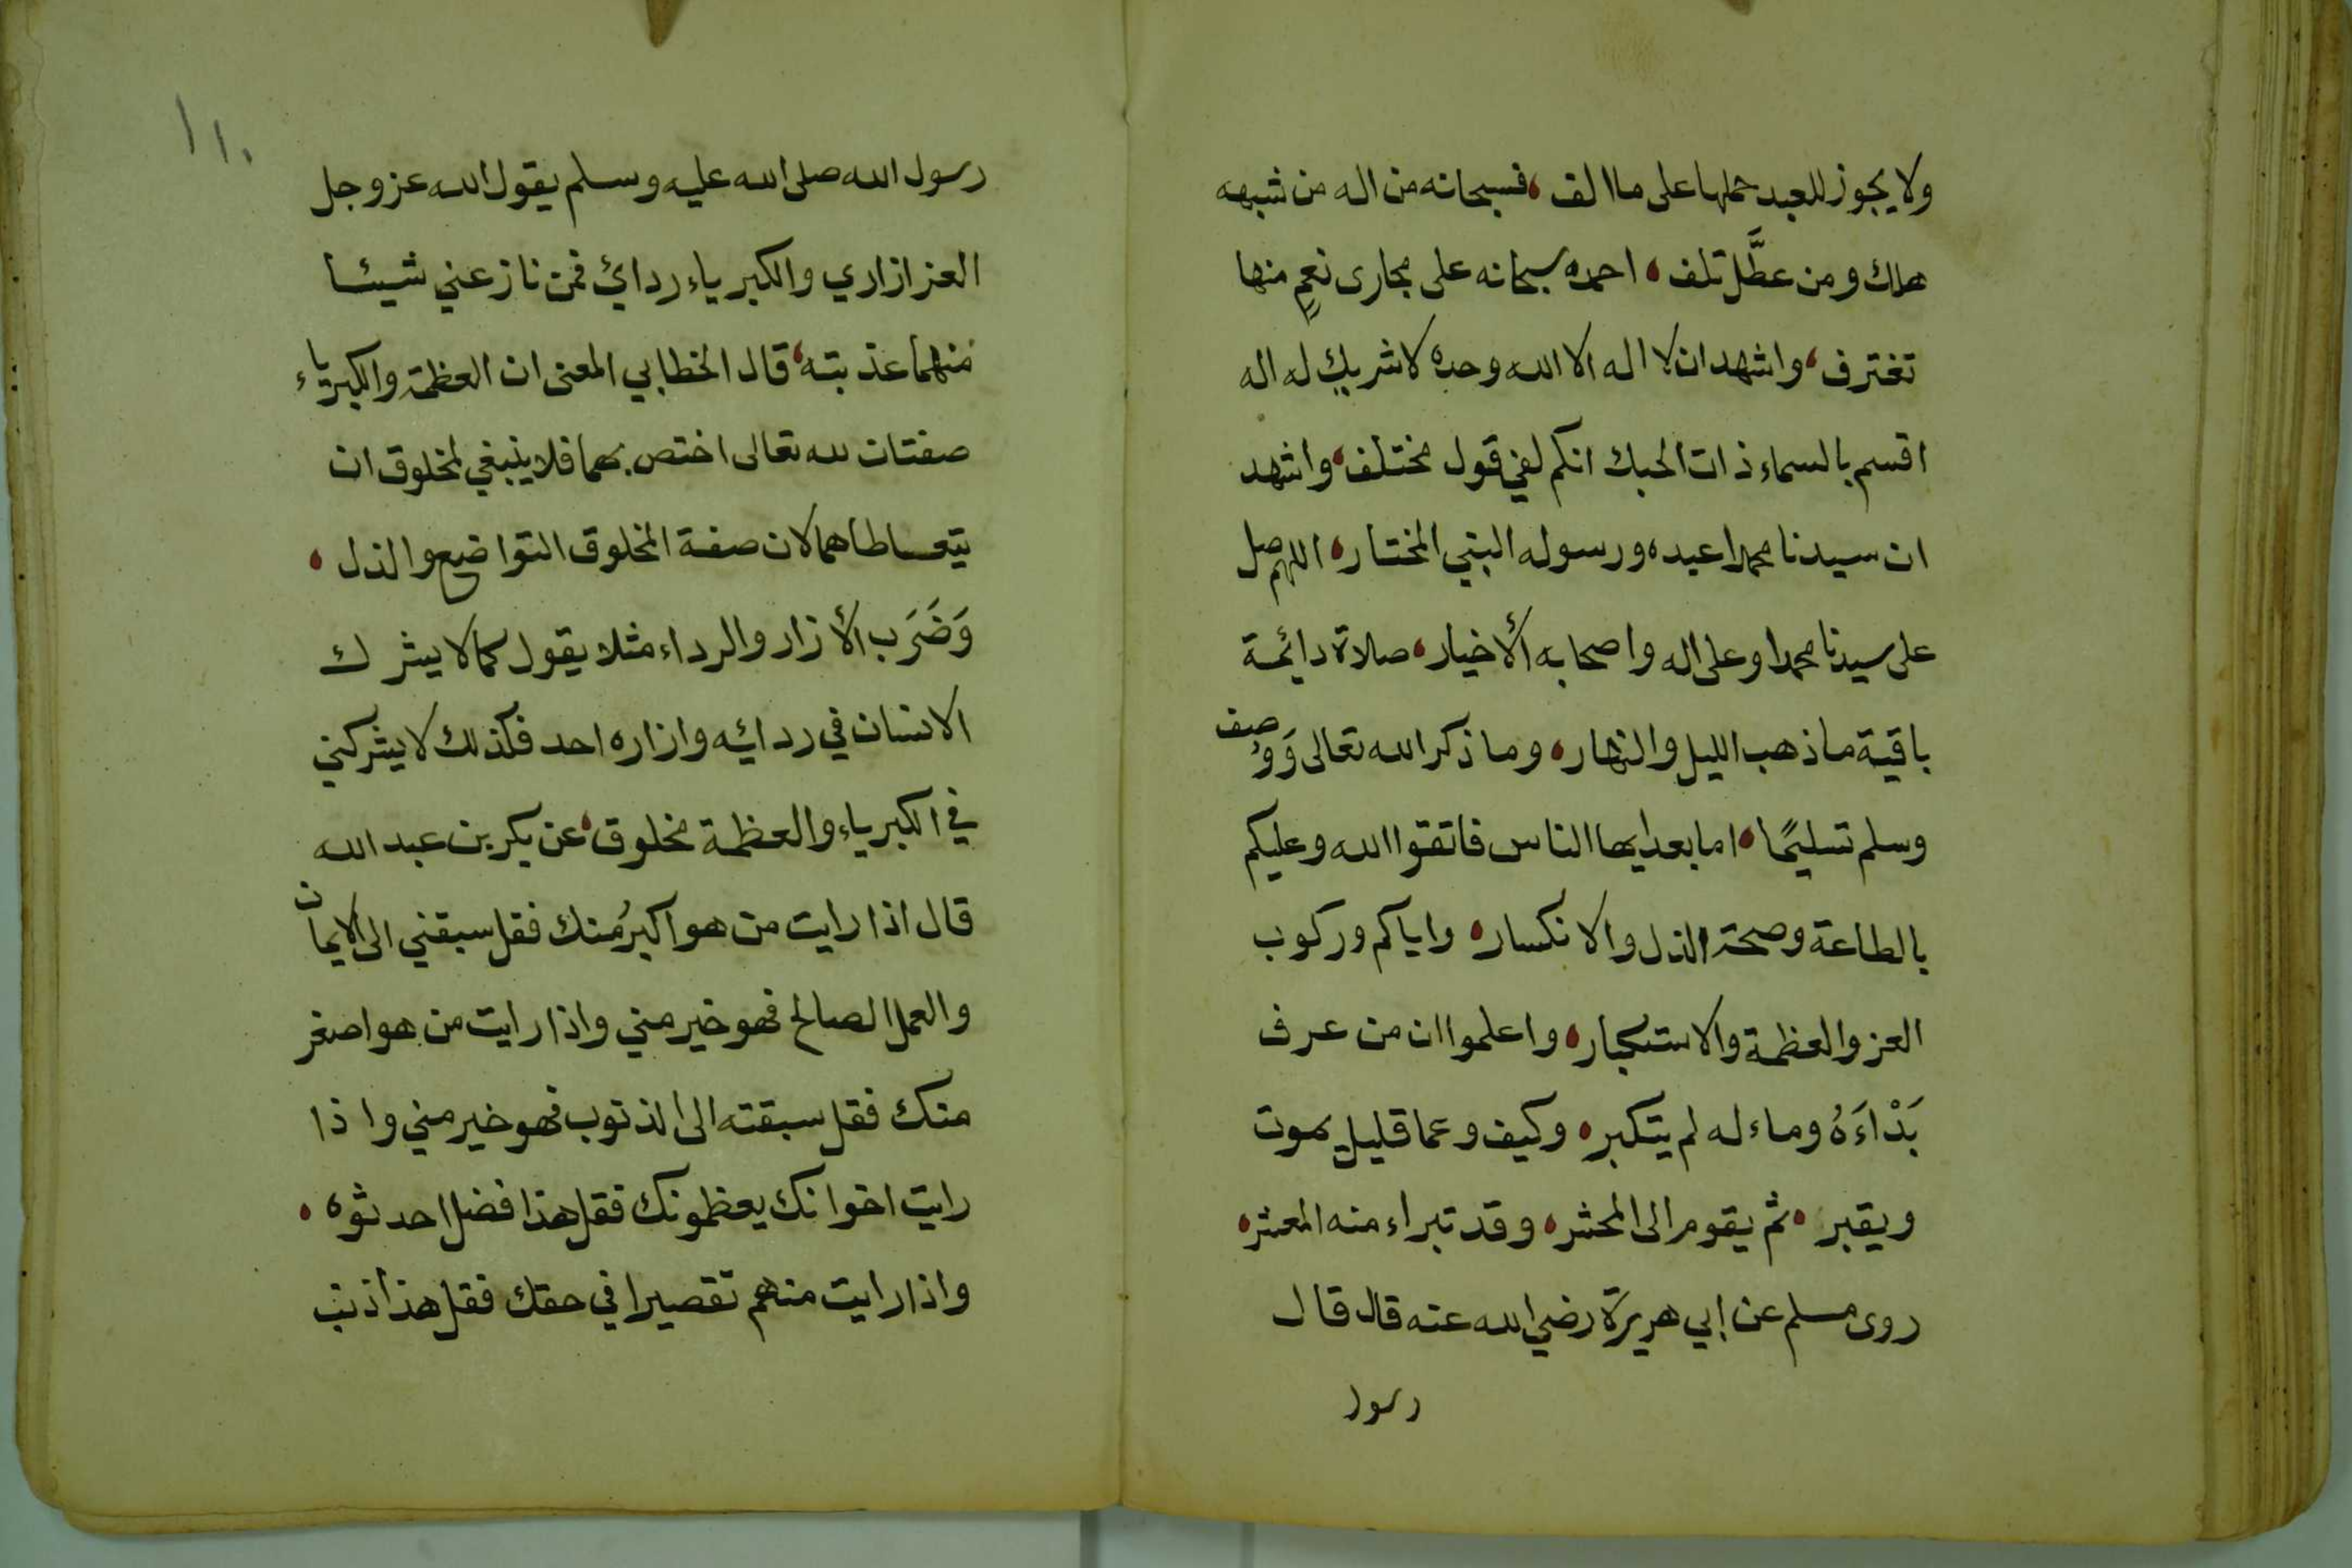 ولا يجوز للعبد حملها على ما الف، فسبحانه من اله من شبهه
هلك ومن عطَّل تلف، احمده سبحانه على مجارى نعمٍ منها
تغترف، واشهد ان لا اله الا الله وحده لا شريك له اله
اقسم بالسماء ذات الحبك انكم لفي قول مختلف، واشهد
ان سيدنا محمدا عبده ورسوله النبي المختار، اللهم صل
على سيدنا محمدا وعلى اله واصحابه الأخيار، صلاة دائمة
باقية ما ذهب الليل والنهار، وما ذكر الله تعالى وَوُصف
وسلم تسليمًا، اما بعد ايها الناس فاتقوا الله وعليكم
بالطاعة وصحة الذل والانكسار، واياكم وركوب
العز والعظمة والاستكبار، واعلموا ان من عرف
بَدْاءَهُ وماءله لم يتكبر، وكيف وعما قليل يموت
ويقبر، ثم يقوم الى المحشر، وقد تبراء منه المعشر،
روى مسلم عن ابي هريرة رضي الله عنه قال قال
رسول
١١٠
رسول الله صلى الله عليه وسلم يقول الله عز وجل
العز ازاري والكبرياء ردائ فمن نازعني شيئا
منهما عذبته، قال الخطابي المعنى ان العظمة والكبرياء
صفتان لله تعالى اختص بهما فلا ينبغي لمخلوق ان
يتعاطاهما لان صفة المخلوق التواضع والذل،
وَضَرَب الأزار والرداء مثلا يقول كما لا يشرك
الانسان في ردائه وازاره احد فكذلك لا يشركني
في الكبرياء والعظمة مخلوق، عن بكر بن عبد الله
قال اذا رايت من هو اكبرُ منك فقل سبقني الى الايمان
والعمل الصالح فهو خير مني واذا رايت من هو اصغر
منك فقل سبقته الى الذنوب فهو خير مني واذا
رايت اخوانك يعظمونك فقل هذا فضل احدثوه،
واذا رايت منهم تقصيرا في حقك فقل هذا ذنب